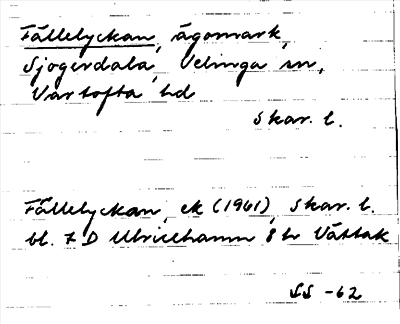 Fällelyckan, ägomark,
Sjogerdala, Velinga sn,
Vartofta hd
Skar. l.
Fällelyckan, ek (1961), Skar. l.
bl. 7 D Ulricehamn 8 hr Vättak
SS -62